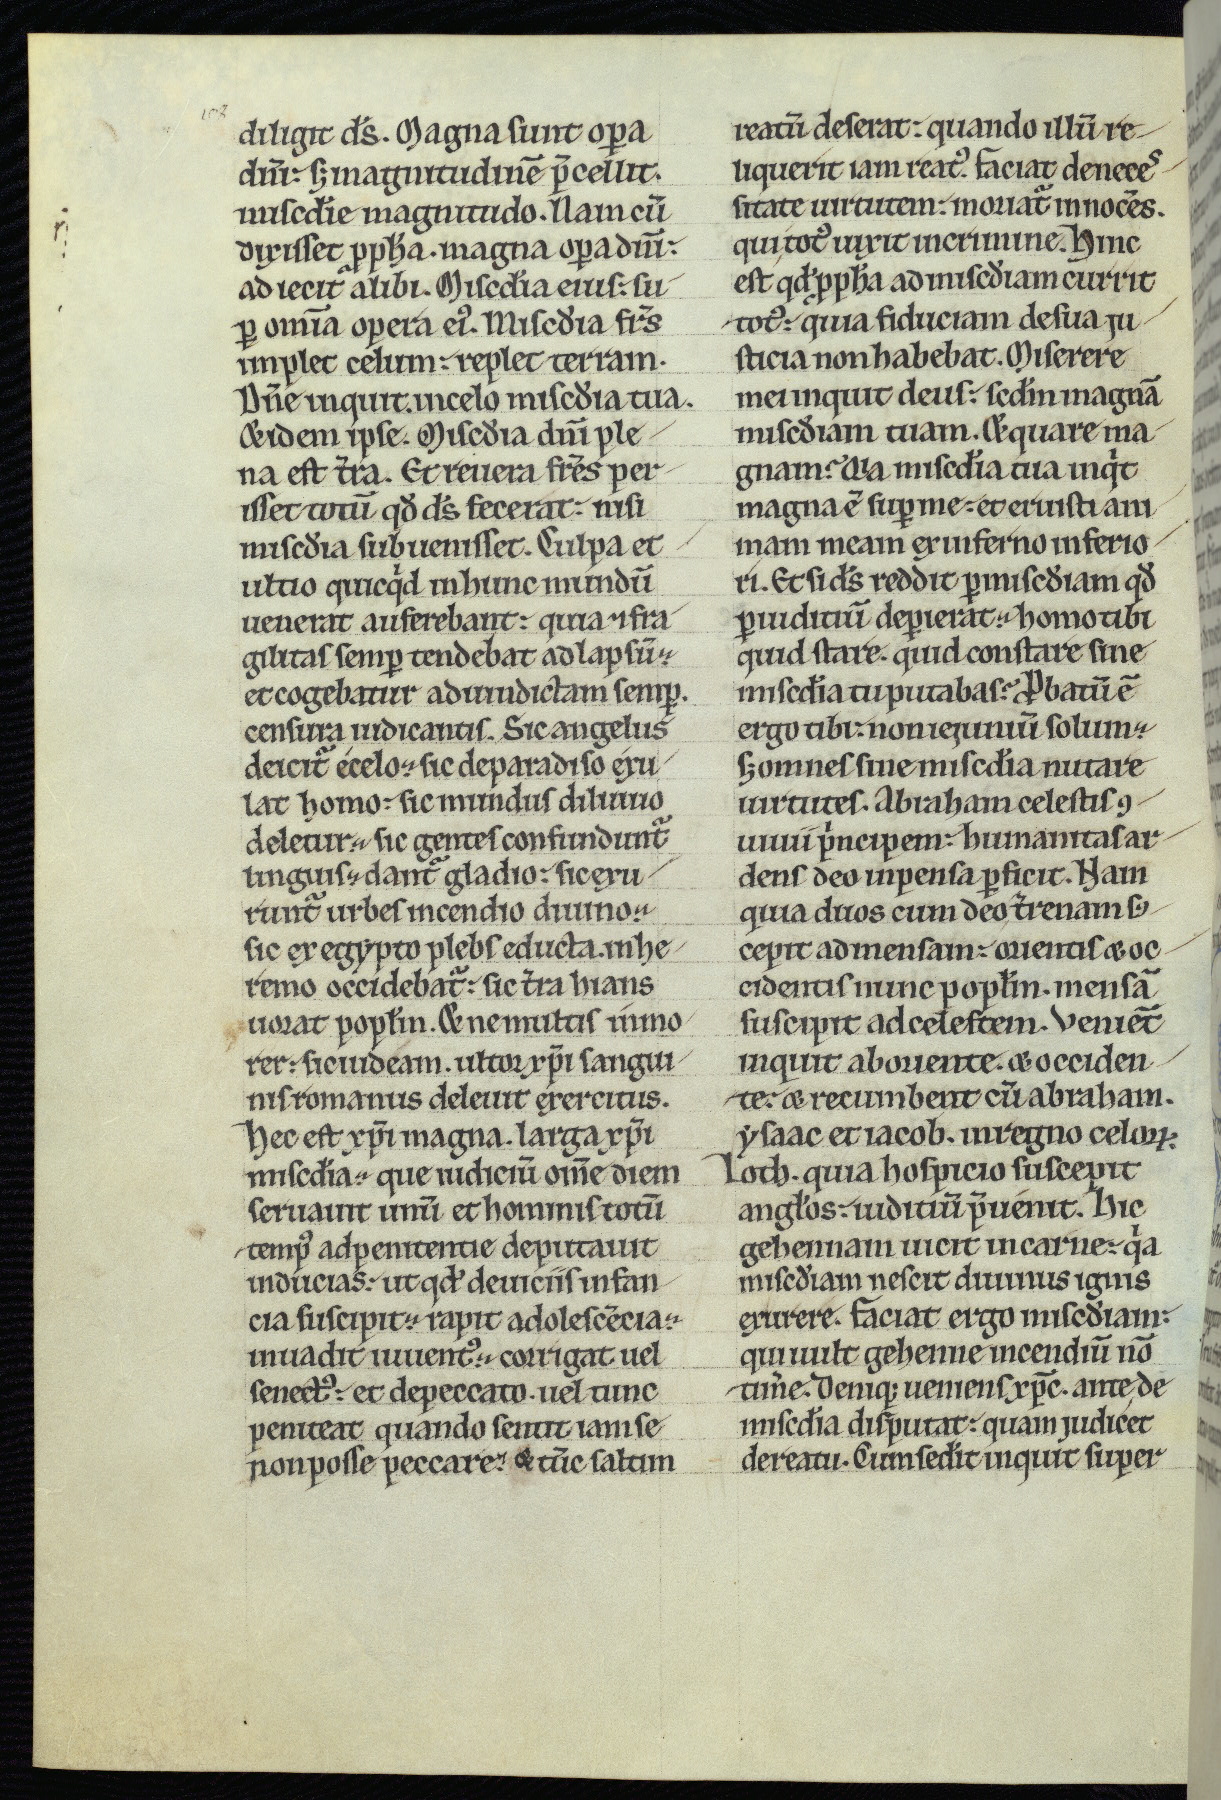 diligit dṡ. Magna sunt oꝑa
dn̄i: sꝫ magnitudinē p̄cellit.
miscd̄ie magnitudo. Nam cū
dixisset ꝓph̄a. magna oꝑa dn̄i:
adiecit alibi. Miscd̄ia eius: su/
ꝑ om̄ia opera eiꝰ. Miscd̄ia fr̄s
implet celum: replet terram.
Dn̄e inquit. in celo miscd̄ia tua.
& idem ipse. Miscd̄ia dn̄i ple/
na est t̄ra. Et reuera fr̄es per/
isset totū qd̄ dṡ fecerat: nisi
miscd̄ia subuenisset. Culpa et /
ultio quicqͥd in hunc mundū
uenerat auferebant: quia ⁊ fra/
gilitas semꝑ tendebat ad lapsū:
et cogebatur ad uindictam semꝑ.
censura iudicantis. Sic angelus
deicitᷓ e celo: sic de paradiso exu/
lat homo: sic mundus diluuio
deletur: sic gentes confunduntᷓ
linguis: dantᷓ gladio: sic exu/
runtᷓ urbes incendio diuino:
sic ex egypto plebs educta. in he/
remo occidebatᷓ: sic t̄ra hians
uorat popl̄m. & ne multis inmo/
rer: sic iudeam. ultor xp̄i sangui/
nis romanus deleuit exercitus.
Hec est xp̄i magna. larga xp̄i
miscd̄ia: que iudiciū om̄e diem
seruauit unū et hominis totū
/tempꝰ ad penitentie deputauit
inducias: ut qd̄ de uiciis infan/
cia suscipit: rapit adolescēcia:
inuadit iuuentꝰ: corrigat uel
senectꝰ: et de peccato. uel tunc
peniteat quando sentit iam se
non posse peccare: & tūc saltim
reatū deserat: quando illū re/
liquerit iam reatꝰ. faciat de neces/
sitate uirtutem: moriatᷓ innocēs.
qui totꝰ uixit in crimine. Hinc
est qd̄ ꝓph̄a ad miscd̄iam currit
/totꝰ: quia fiduciam de sua iu/
sticia non habebat. Miserere
mei inquit deus: scd̄m magnā
miscd̄iam tuam. & quare ma/
gnam? Q̄a miscd̄ia tua inqͥt
magna ē suꝑ me: et eruisti ani/
mam meam ex inferno inferio/
ri. Et si dṡ reddit ꝑ miscd̄iam qd̄
ꝑ iuditiū deꝑierat: homo tibi
quid stare. quid constare sine
miscd̄ia tu putabas? Ꝓbatū ē
ergo tibi: non ieiuniū solum:
sꝫ omnes sine miscd̄ia nutare
uirtutes. Abraham celestis ꝯ/
uiuii pͥncipem: humanitas ar/
dens deo inpensa ꝑficit. Nam
quia duos cum deo t̄renam sꝰ/
cepit ad mensam: orientis & oc/
cidentis nunc popl̄m. mensā
suscipit ad celestem. Veniēt
inquit ab oriente. & occiden/
/te: & recumbent cū abraham.
ysaac et iacob. in regno celoꝝ.
Loth. quia hospicio suscepit
angl̄os: iuditiū p̄uenit. Hic
gehennam uicit in carne: qͥa
miscd̄iam nescit diuinus ignis
exurere. faciat ergo miscd̄iam:
qui uult gehenne incendiū nō
/tim̄e. Deniqꝫ ueniens xp̄c. ante de
miscd̄ia disputat: quam iudicet
de reatu. Cum sed̄it inquit super